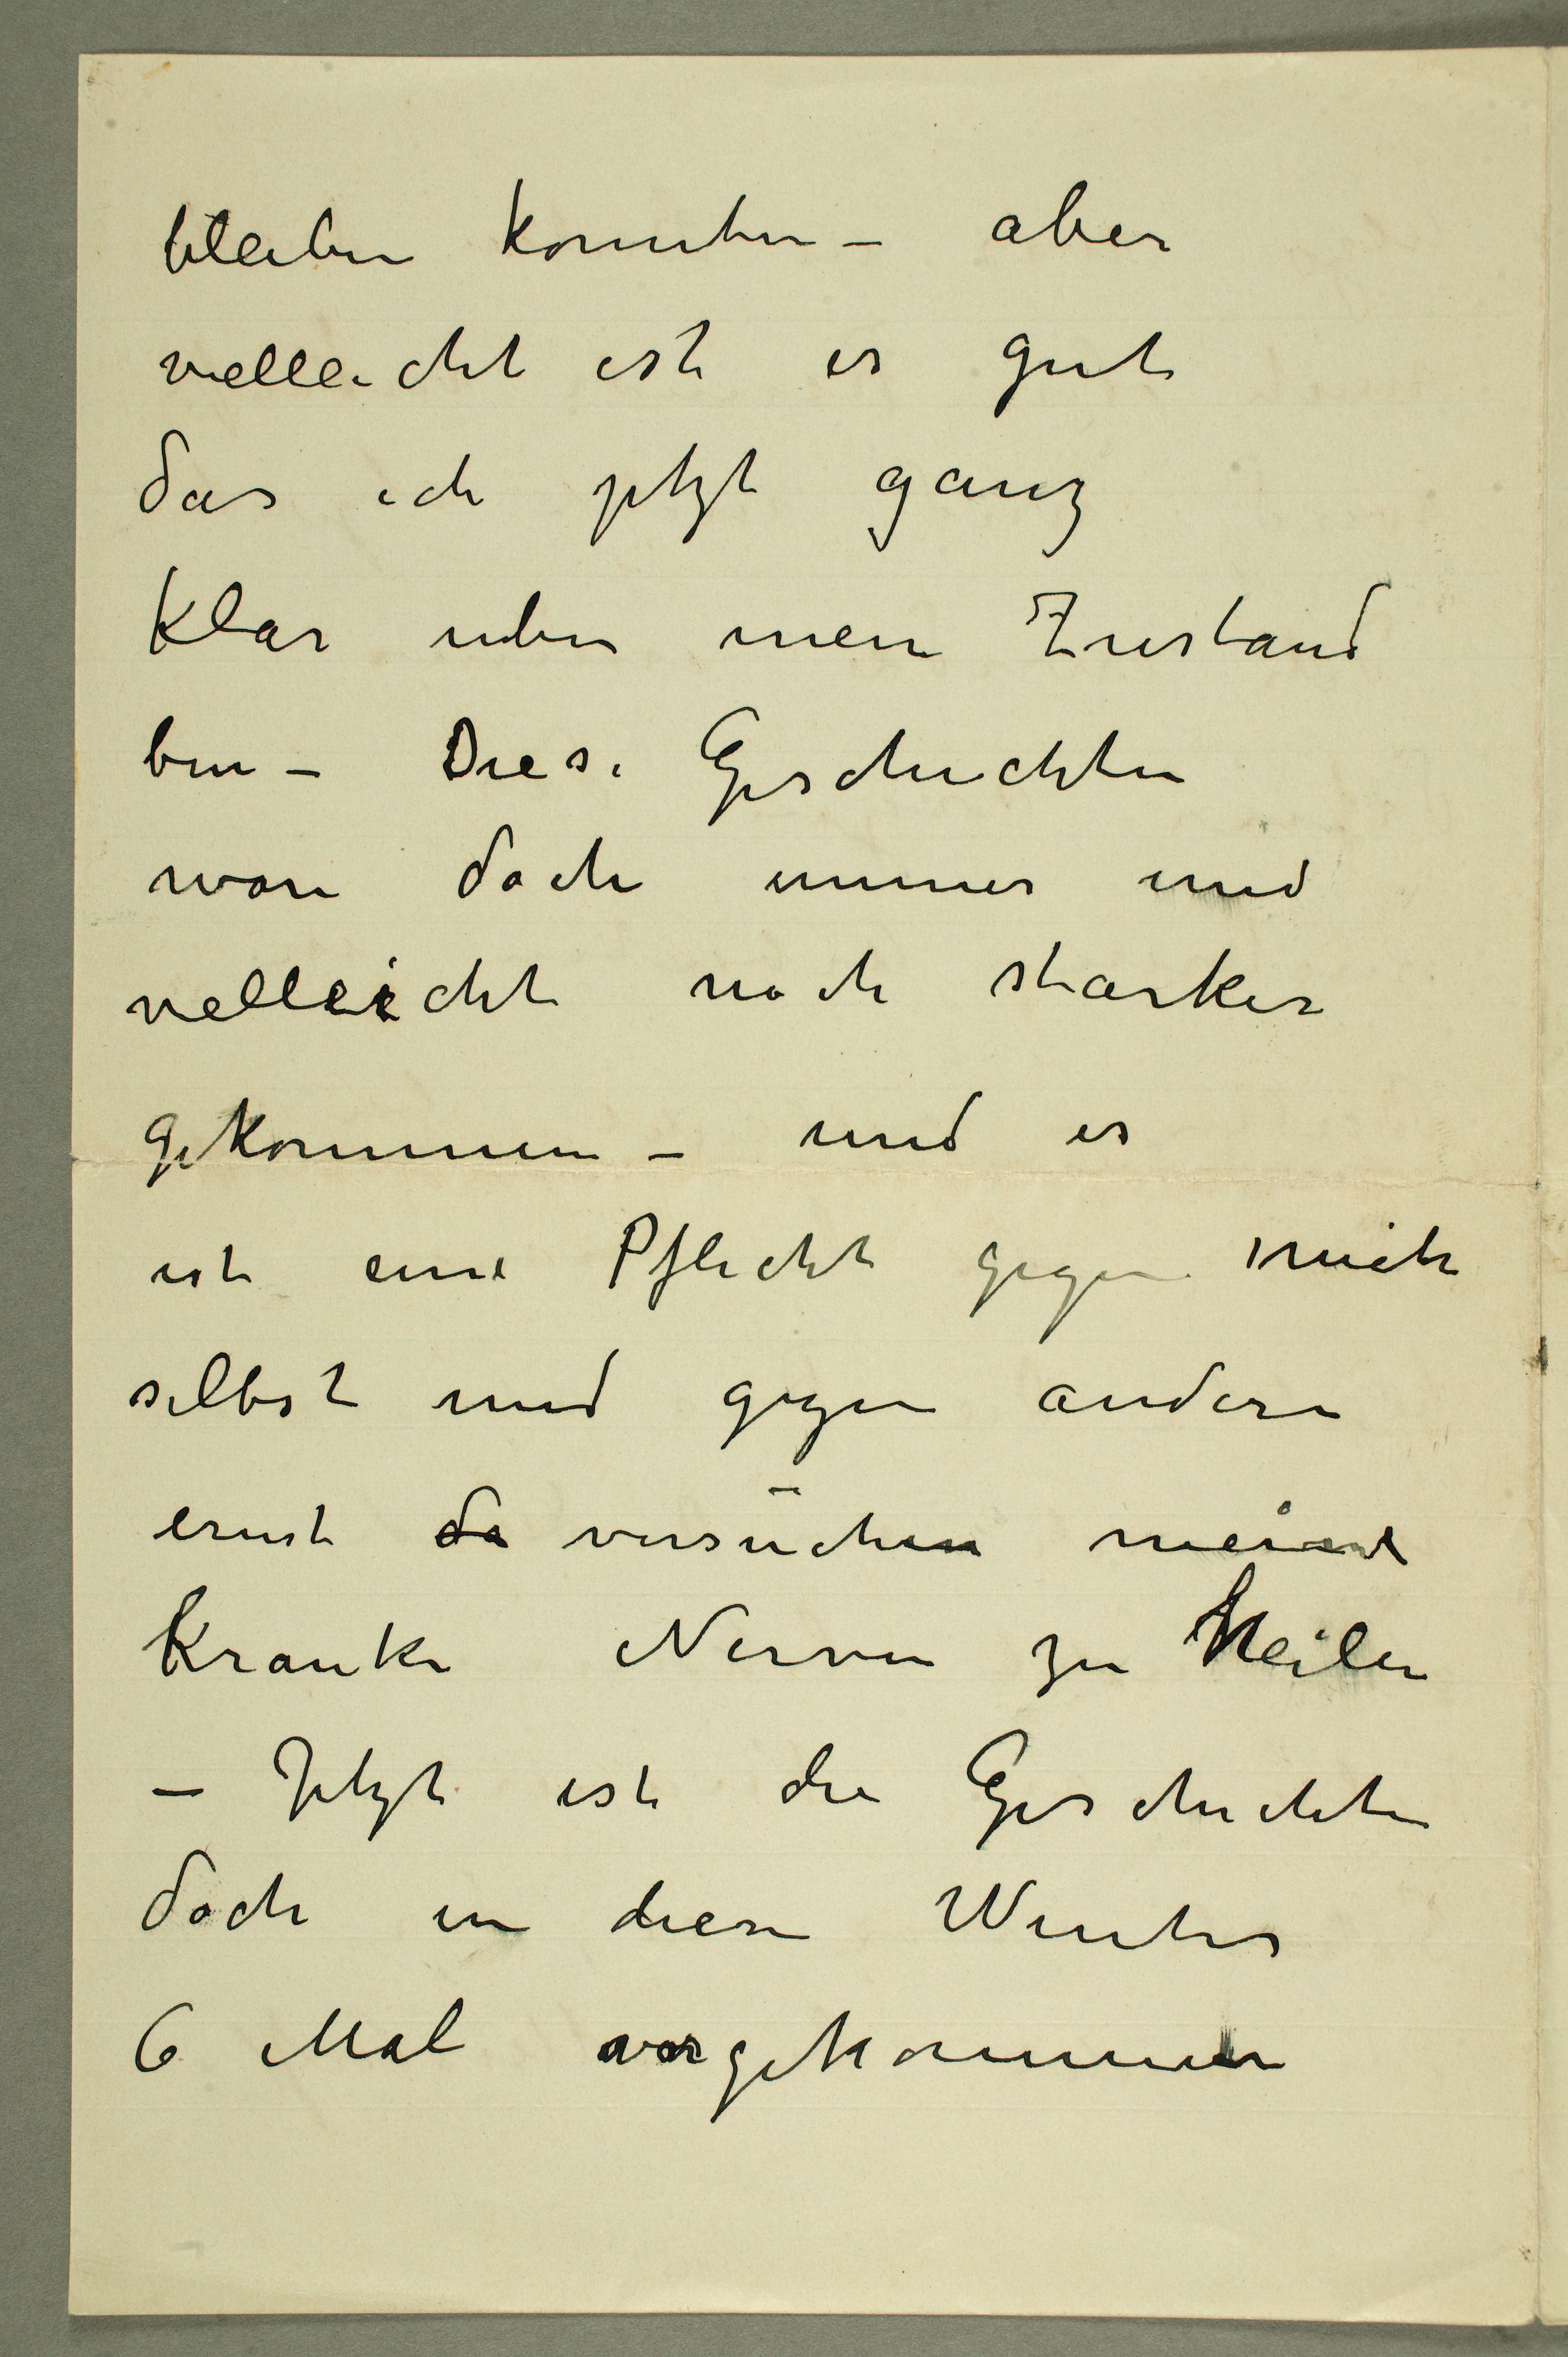 bleiben konnten – aber
vielleicht ist es gut
das ich jetzt ganz
klar uber mein Zustand
bin – Diese Geschichten
waren doch immer und
vielleicht noch starker
gekommen – und es
ist eine Pflicht gegen mich
selbst und gegen andern
ernst da versuchen meine
kranke Nerven zu heilen
– Jetzt ist die Geschichten
doch in diesen Winter
6 Mal vorgekommen